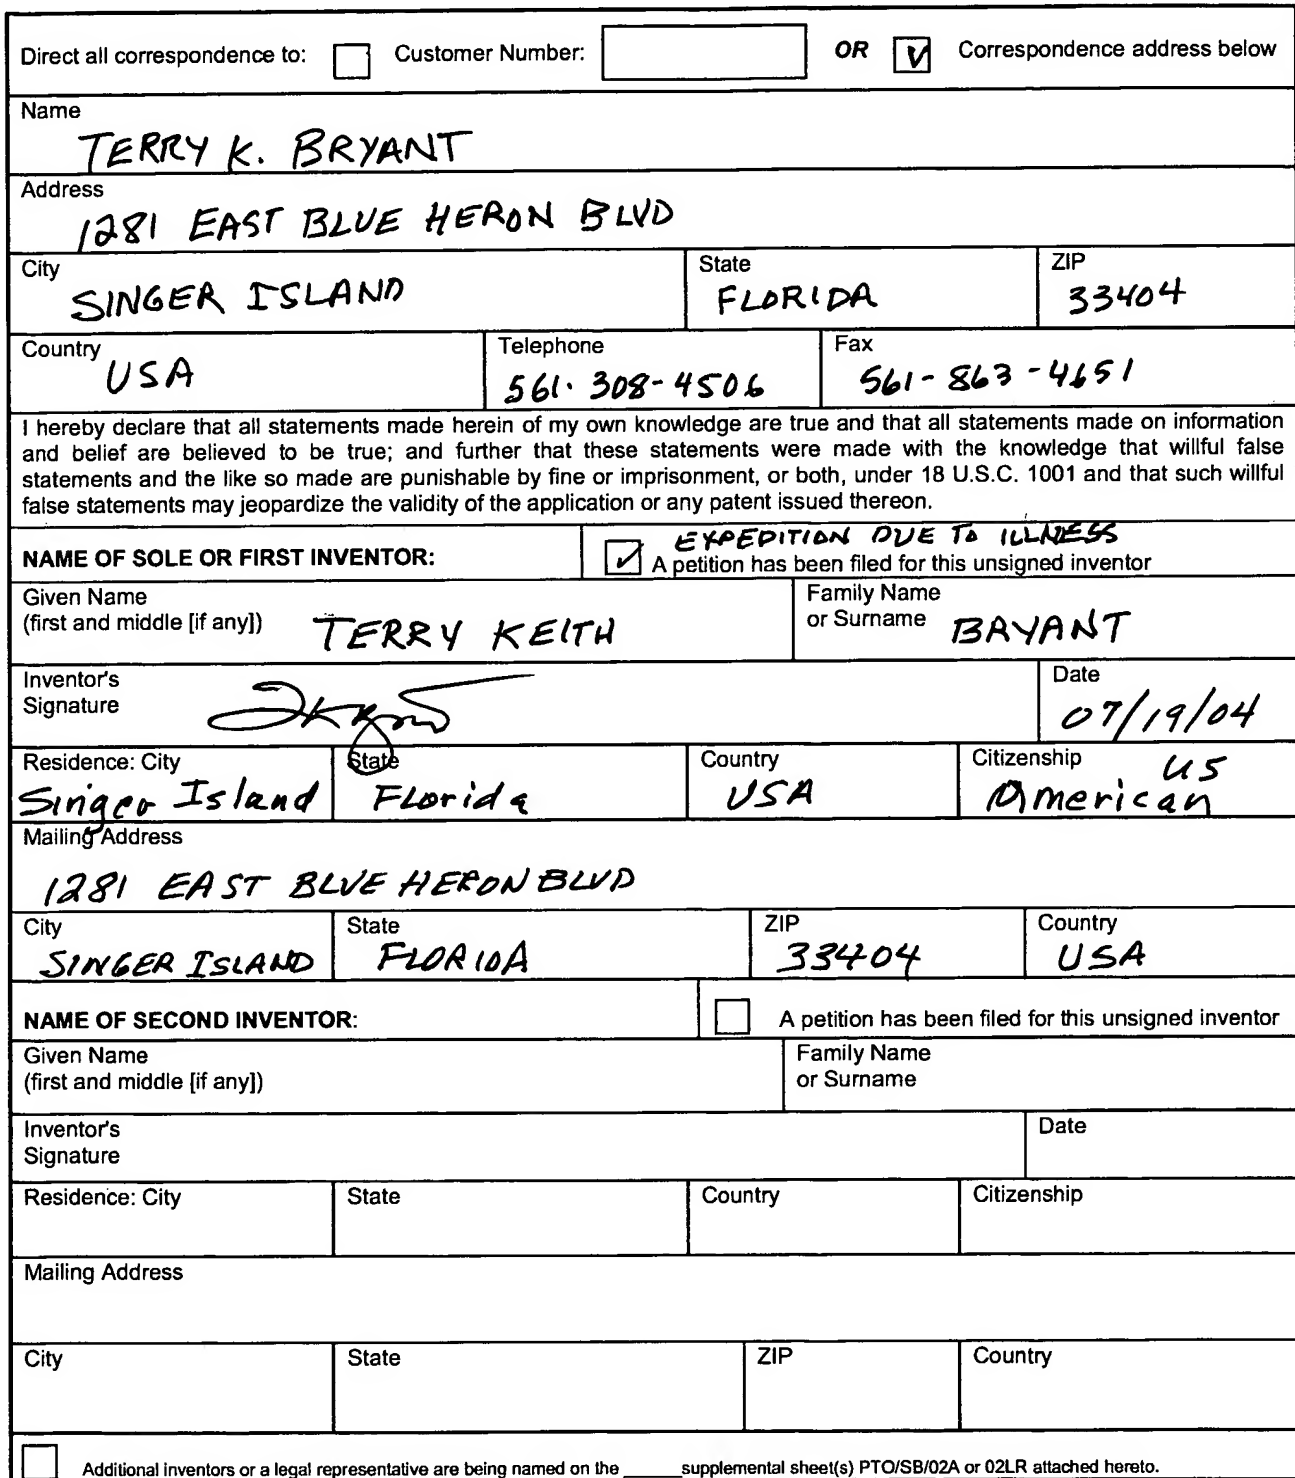 Direct all correspondence to: Customer Number: OR V Correspondence address below
Name
TERRY K. BRYANT
Address
1281 EAST BLUE HERON BLVD
City State ZIP
SINGER ISLAND FLORIDA 33404
Country Telephone Fax
USA 561. 308-4506 561-863-4651
I hereby declare that all statements made herein of my own knowledge are true and that all statements made on information
and belief are believed to be true; and further that these statements were made with the knowledge that willful false
statements and the like so made are punishable by fine or imprisonment, or both, under 18 U.S.C. 1001 and that such willful
false statements may jeopardize the validity of the application or any patent issued thereon.
EXPEDITION DUE TO ILLNESS
NAME OF SOLE OR FIRST INVENTOR: ✓ A petition has been filed for this unsigned inventor
Given Name Family Name
(first and middle [if any]) TERRY KEITH or Surname BRYANT
Inventor's Date
Signature 07/19/04
Residence: City State Country Citizenship US
Singer Island Florida USA American
Mailing Address
1281 EAST BLUE HERON BLVD
City State ZIP Country
SINGER ISLAND FLORIDA 33404 USA
NAME OF SECOND INVENTOR: A petition has been filed for this unsigned inventor
Given Name Family Name
(first and middle [if any]) or Surname
Inventor's Date
Signature
Residence: City State Country Citizenship
Mailing Address
City State ZIP Country
Additional inventors or a legal representative are being named on the _____supplemental sheet(s) PTO/SB/02A or 02LR attached hereto.